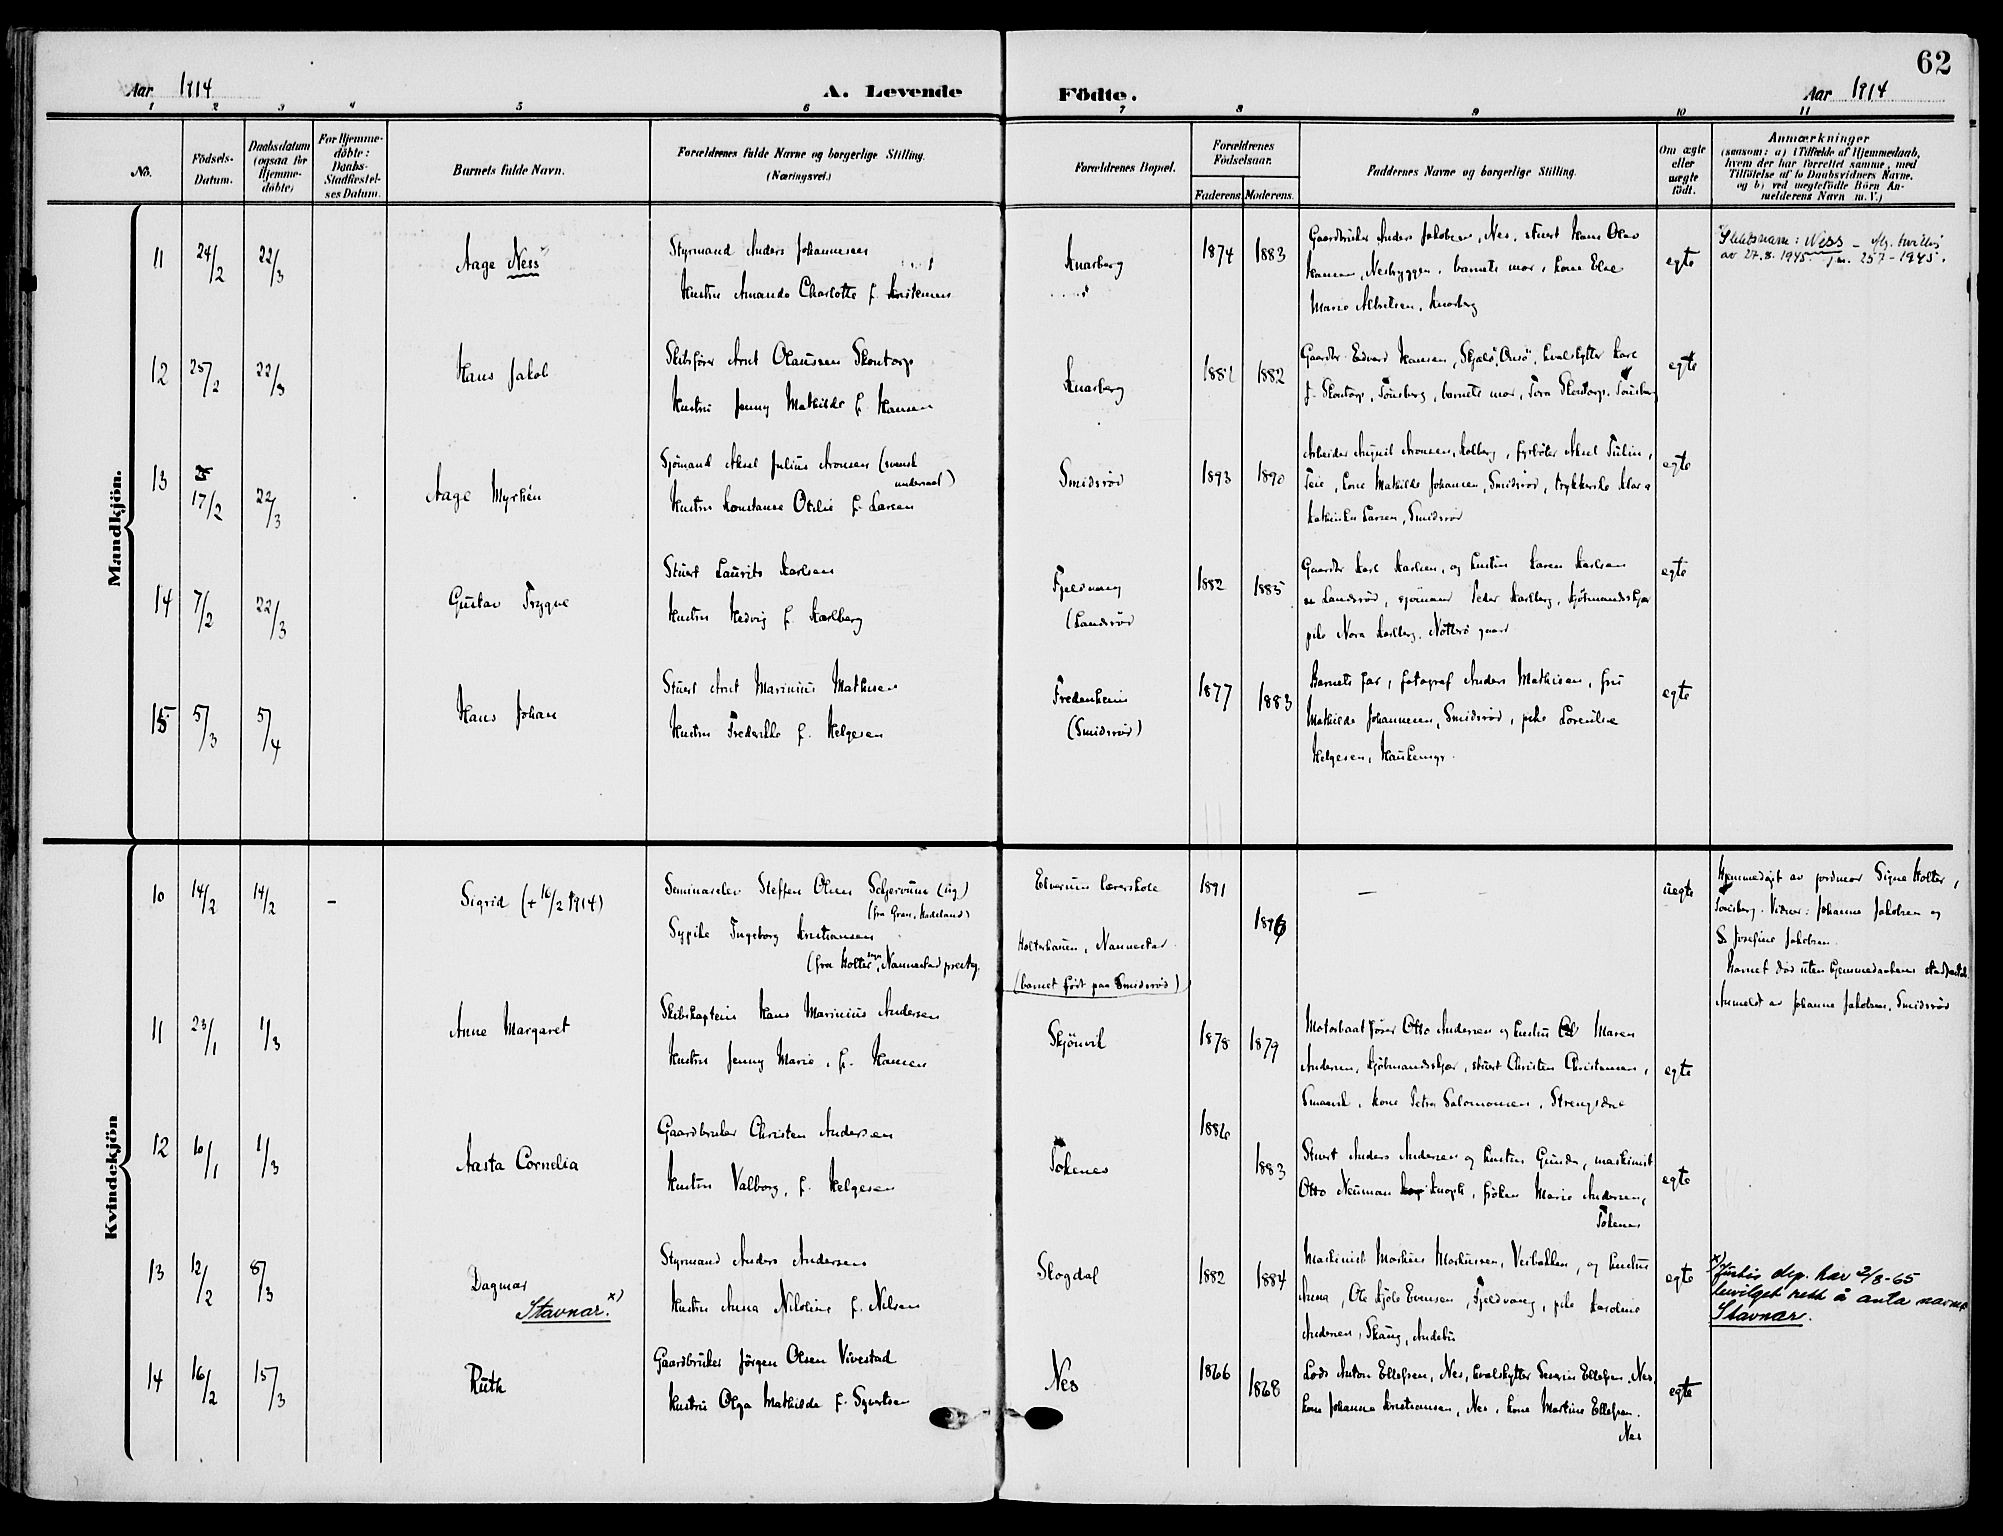 62
Aar 1914
A. Levende
Födte.
Aar 1914
1 2 3 4 5 6 7 8 9 10 11
No.
Födsels-Datum.
Daabsdatum (ogsaa for Hjemme-döbte)
For Hjemme-döbte: Daabs-Stadfæstel-ses Datum.
Barnets fulde Navn.
Forældrenes fulde Navne og borgerlige Stilling.
(Næringsvei.)
Forældrenes Bopæl.
Forældrenes Födselsaar.
Faderens. Moderens.
Faddernes Navne og borgerlige Stilling.
Om ægte eller uægte födt.
Anmærkninger
(saasom: a) i Tilfælde af Hjemmedaab,
hvem der har forrettet samme, med
Tilföielse af to Daabsvidners Navne.
og b) ved uægtefödte Börn An-
melderens Navn m. V.)
Mandkjön.
11 24/2 22/3
Aage Ness
Styrmand Anders Johannesen
Hustru Amanda Charlotte f. Kristensen
Knarberg
1874 1883
Gaardbruker Anders Jakobsen, Nes, stuert Hans Olav
Hansen, Nesbyggen, barnets mor, kone Else
Marie Albretsen, Knarberg
egte
Slektsnavn: Ness
av 27.8.1945. 257-1945.
12 25/2 22/3
Hans Jakob
Skibsfører Arnt Olaussen Skontorp
Hustru Jenny Mathilde f. Hansen
Knarberg
1881 1882
Gaardbr. Edvard Hansen, Onsö, hvalskytter Karl
J. Skontorp, Tönsberg, barnets mor, Tora Skontorp, Tönsberg
egte
13 17/2 22/3
Aage Myrhén
Sjömand Aksel Julius Aronsen (svensk
undersaat)
Hustru Konstanse Otilie f. Larsen
Smidsröd
1893 1890
Arbeider August Aronsen, Kolberg, fyrböter Aksel Tulin,
Teie, kone Mathilde Johansen, Smidsröd, trykkerske Klara
Kathinka Larsen, Smidsröd
egte
14 7/2 22/3
Gustav Trygve
Stuert Laurits Karlsen
Hustru Hedvig f. Karlberg
Fjeldvang
(Landsröd
1882 1885
Gaardbr Karl Karlsen, og hustru Karen Karlsen
Landsröd, sjömand Peder Karlberg, Kjöbmandsskjær
pike Nora Karlberg, Nötterö gaard
egte
15 5/3 5/4
Hans Johan
Stuert Arnt Marinius Mathisen
Hustru Frederikke f. Helgesen
Fredenheim
(Smidsröd)
1877 1883
Barnets far, fotograf Anders Mathisen, fru
Mathilde Johannesen, Smidsröd, pike Lorentine
Helgesen, Haukemyr.
egte
Kvindekjön
10 14/2 14/2 —
Sigrid (+ 16/2 1914)
Seminarelev Steffen Olsen Schjervum (ug.)
(fra Gran, Hadeland)
Sypike Ingeborg Kristiansen
(fra Holter sogn, Nannestad præstg.
Elverum lærerskole
Holterhauen, Nannestad
(barnet född paa Smidsröd)
1891
1896
— -
uegte
Hjemmedöpt av jordmor Signe Holter,
Tönsberg. Vidner: Johanne Jakobsen og
Josefine Jakobsen.
Barnet död uten hjemmedaabens stadfæstelse
Anmeldt av Johanne Jakobsen, Smidsröd
11 23/1 1/3
Anne Margaret
Skibskaptein Hans Marinius Andersen
Hustru Jenny Marie, f. Hansen
Skjönvik
1878 1879
Motorbaatförer Otto Andersen og hustru Maren
Andersen, Kjöbmandsskjær, stuert Christen Christensen,
kone Petra Salomonsen, Strengsdal
egte
12 10/1 1/3
Aasta Cornelia
Gaardbruker Christen Andersen
Hustru Valborg, f. Helgesen
Tokenes
1886
1883
Stuert Anders Andersen og hustru Gunda, maskinist
Otto Neuman Knoph, fröken Marie Andersen,
Tokenes
egte
13 12/2 8/3
Dagmar
Stavnar. x)
Styrmand Anders Andersen
Hustru Anna Nikoline f. Nilsen
Skogdal
1882 1884
Maskinist Markus Markussen, Vesbakken, og hustru
Anna, Ole Kjöle Evensen, Fjeldvang, pike Karoline
Andersen, Skaug, Andebu
egte
x) Justis dep. har 2/8-65
bevilget rett å anta navnet
Stavnar.
14 16/2 15/3
Ruth
Gaardbruker Jörgen Olsen Vivestad
Hustru Olga Mathilde f. Syvertsen
Nes
1866 1868
Lods Anton Ellefsen, Nes, hvalskytter Severin Ellefsen, Nes,
kone Johanna Kristiansen, Nes, kone Martine Ellefsen.
Nes
egte